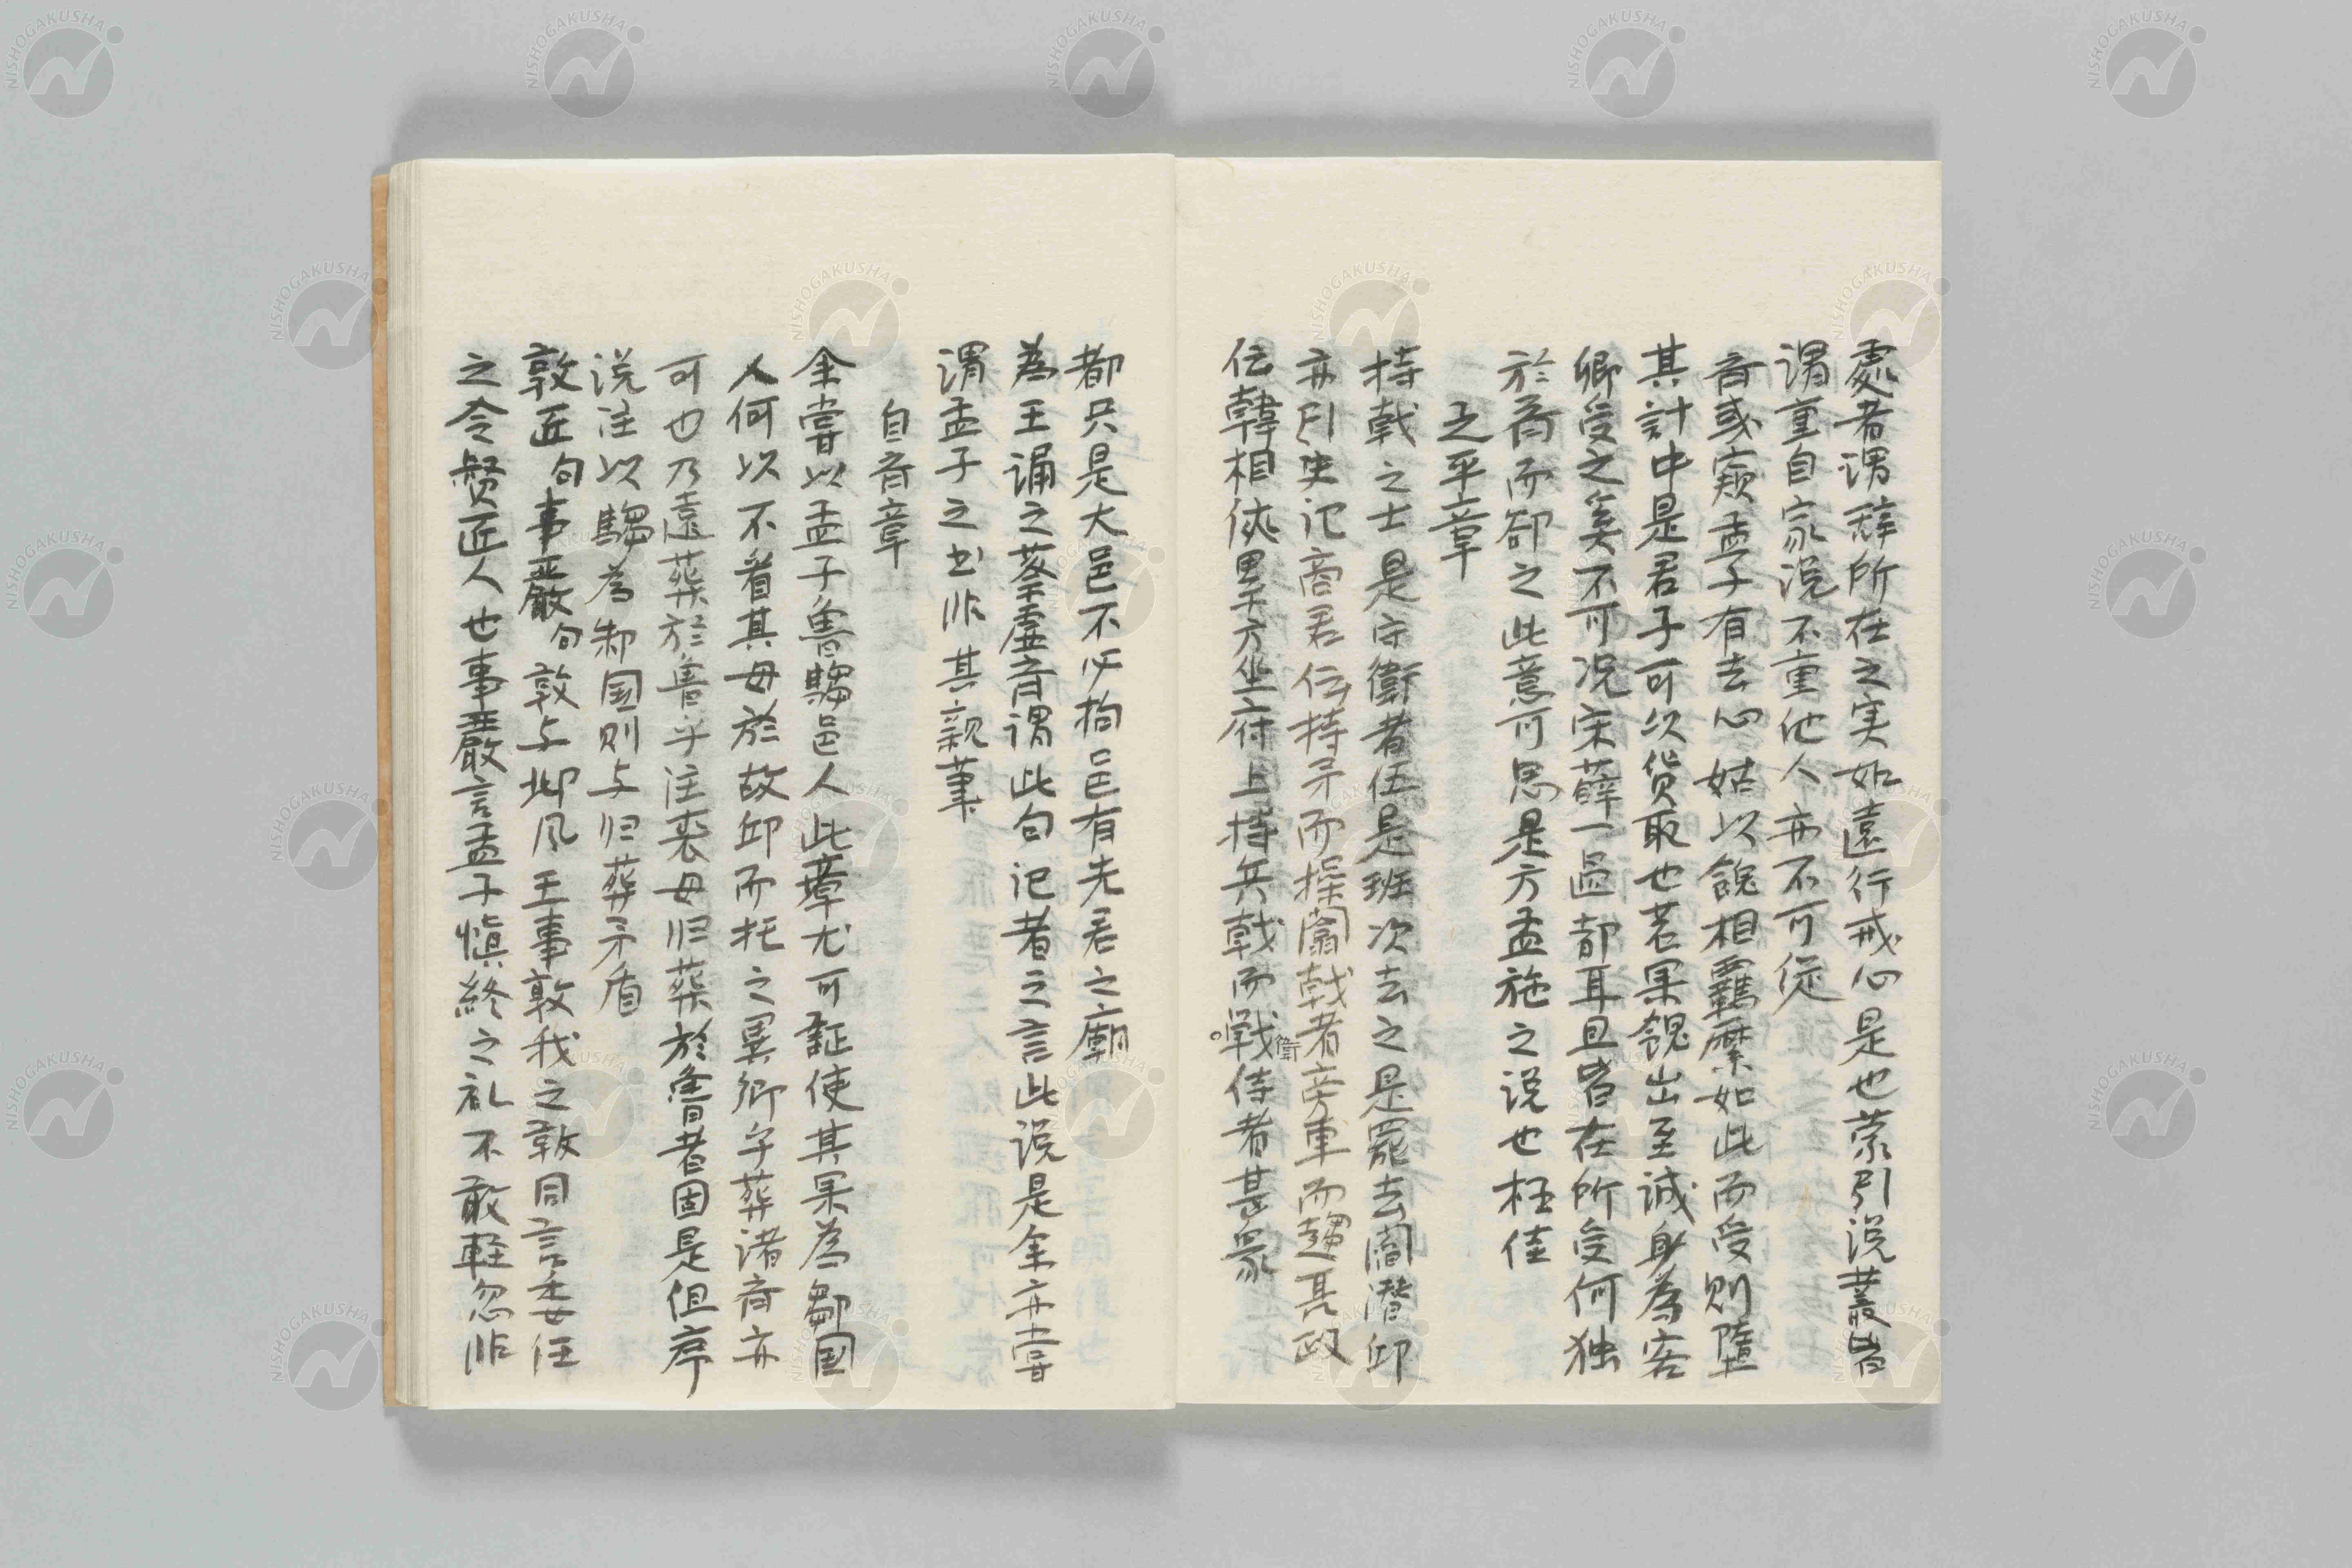 處者謂辞所在之実如遠行戒心是也蒙引説叢皆
謂重自家説不重他人亦不可従
斉或窺孟子有去心姑以餽相羈縻如此而受則墮
其計中是君子可以貨取也若果餽出至誠身為客
卿受之奚不可況宋薛一過都耳且皆在所受何独
於斉而郤之此意可思是方孟施之説也極佳
之平章
持戟之士是守衛者伍是班次去之是罷去閻潜邱
亦引史記商君伝持矛而操闟戟者旁車而趨聶政
伝韓相俠累方坐府上持兵戟而戰衛侍者甚衆
都只是大邑不必拘邑有先君之廟
為王誦之蔡虚斎謂此句記者之言此説是余亦嘗
謂孟子之書非其親筆
自斉章
余嘗以孟子魯騶邑人此章尤可証使其果為鄒国
人何以不着其母於故邱而托之異郷乎葬諸斉亦
可也乃遠葬於魯乎注喪母帰葬於魯者固是但序
説注以騶為邾国則与帰葬矛盾
敦匠句事嚴句敦与邶風王事敦我之敦同言委任
之令督匠人也事嚴言孟子慎終之礼不敢軽忽非